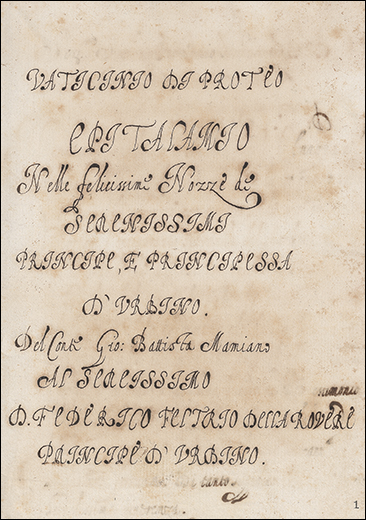 VATICINIO DI PROTEO
EPITALAMIO
Nelle felicissime Nozze de
SERENISSIMI
PRINCIPE, E PRINCIPESSA
D'URBINO.
Del Conte Gio: Battista Mamiano
AL SERENISSIMO
D. FEDERICO FELTRIO DELLA ROVERE
PRINCIPE D'URBINO.
1